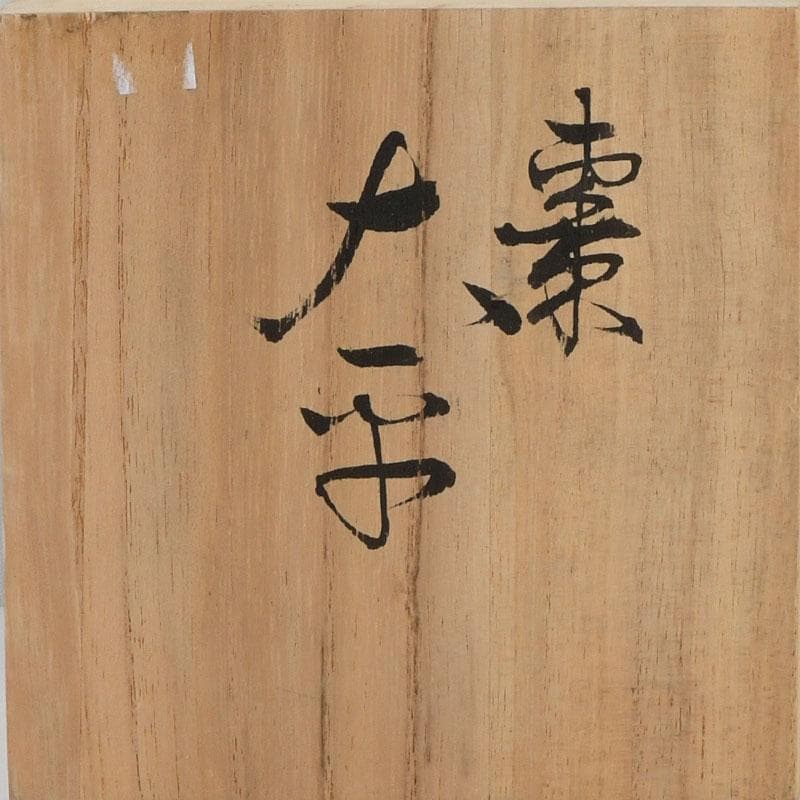 棗
大平